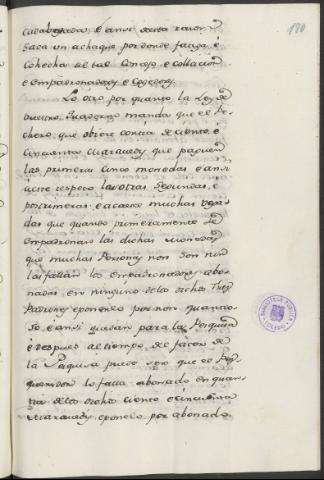 190
Cada Posada, e ansi desta raçon
saca un achaque por donde faciga e
Cohecha al tal Conçejo e collaçion
e Empadronadores e Cogedores.
Lo otro por quanto la Ley de
nuestro Quaderno manda que el Pe-
chero que obiere contia de ciento e
cincuenta maravedis que paguen
las primeras cinco monedas e ansi
a este respeto las otras segundas, e
postrimeras e acaesce muchas veza-
das que quando primeramente se
empadronaro las dichas monedas
que muchas Personas non son nin
las fallan los Empadronadores abo-
nadas en ninguno de los dichos tres
Padrones e ponenlo por non quantio-
so, e ansi quedan para la Pesquisa
e despues al tiempo de facer de
la Pesquisa puede ser que el Pes-
queridor lo falla abonado en quan-
tia de los dichos ciento e cincuenta
maravedis, e ponelo por abonado
BIBLIOTECA PUBLICA
TOLEDO